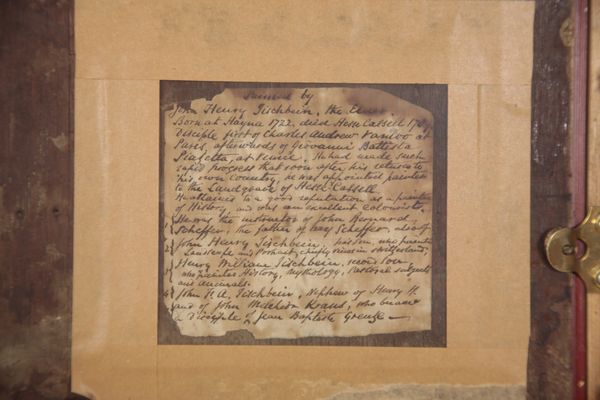 Painted by
John Henry Tischbein, the Elder
Born at Hayna 1722, died Hesse Cassell 1789
Disciple first of Charles Andrew Vanloo at
Paris, afterwards of Giovanni Battista
Piazetta, at Venice, He had made such
rapid progress that soon after his return to
his own country, he was appointed painter
to the Landgrave of Hesse Cassell
He attained to a good reputation as a painter
of History, and was an excellent colourist.
He was the instructor of John Bernard
Scheffer, the father of Ary Scheffer, also of
John Henry Tischbein, his son, who painted
Landscape and Portrait, chiefly views in Switzerland,
Henry William Tischbein, second son
who painted History, Mythology, Pastoral subjects
and Animals.
John F. A. Tischbein, Nephew of Henry H.
and of John Melchior Kraus, who became
a Disciple of Jean Baptiste Greuze —